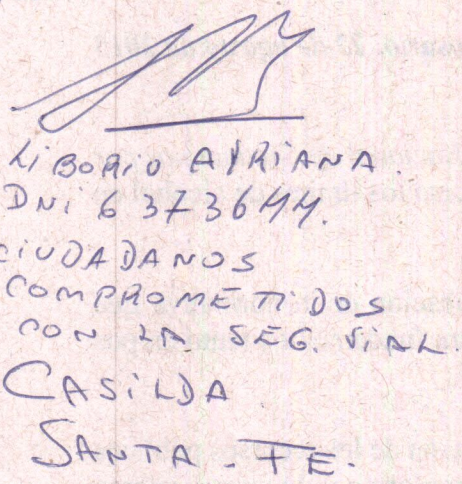 LiBORiO ADRiANA.
DNi 6373644.
CiUDADANOS
COMPROMETiDOS
CON LA SEG. ViAL.
CASiLDA
SANTA - FE.